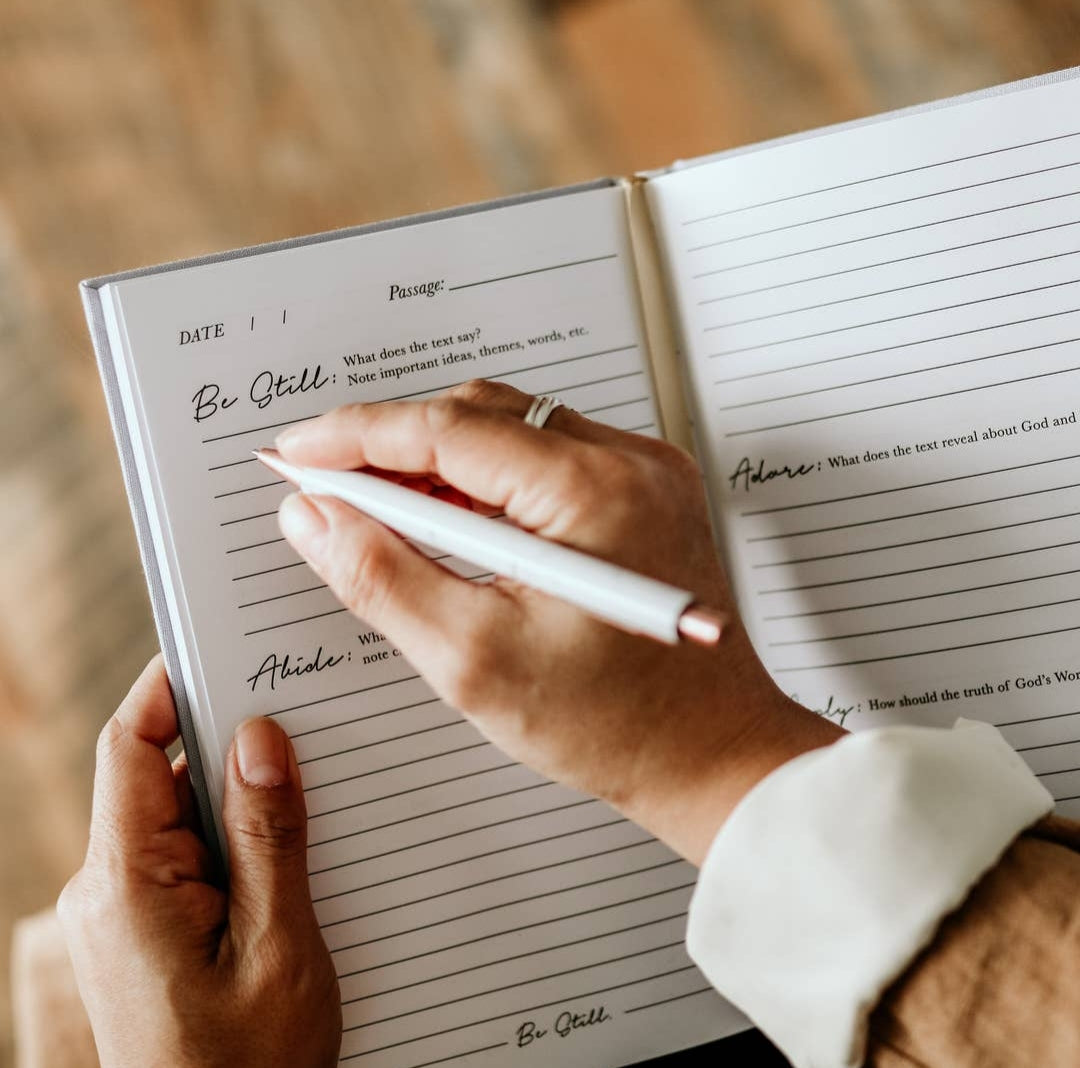 Passage:
DATE | |
Be Still: What does the text say?
Note important ideas, themes, words, etc.
Abide:
note
Be Still.
Adore: What does the text reveal about God and
: How should the truth of God's